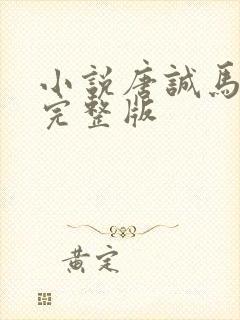 小說唐誠馬
完整版
黃定